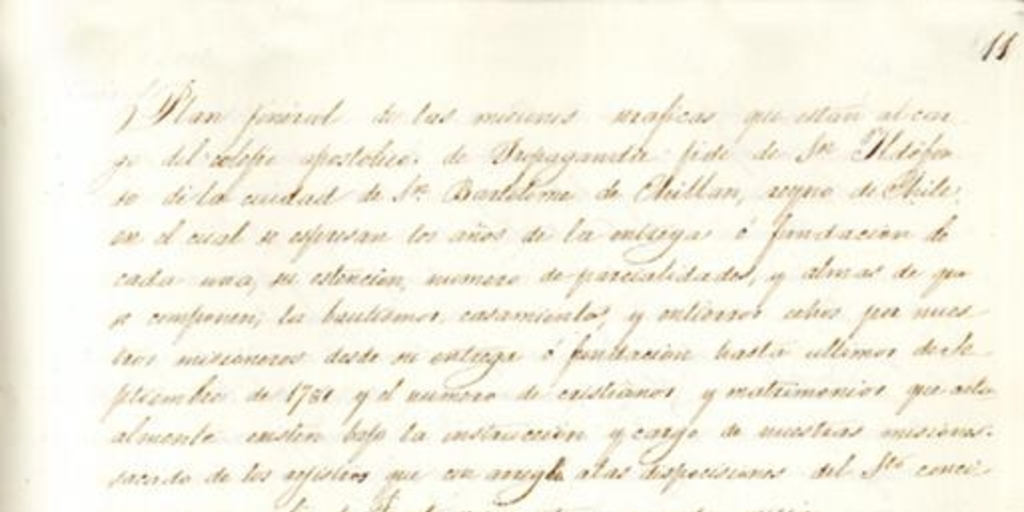 11
Plan general de las misiones que estan al car
go del colegio apostolico de Propaganda fide de Sn Ildefon
so de la ciudad de Sn Bartolome de Chillan, reyno de Chile:
en el cual se espresan los años de la entrega ó fundacion de
cada una, su estencion, numero de parcialidades, y almas de que
se componen; los bautismos, casamientos, y entierros echos por nues
tros misioneros desde su entrega ó fundacion hasta ultimos de Se
ptiembre de y el numero de cristianos y matrimonios que actu
almente ecsisten bajo la instruccion y cargo de nuestras misiones.
sacado de los registros que con arreglo a las disposiciones del Sto conci